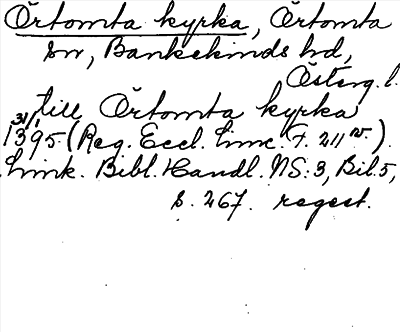 Örtomta kyrka, Örtomta
sn, Bankekinds hd,
Österg. l.
till Örtomta kyrka
31/1 1395 (Reg. Eccl. Linc. F. 211 v.).
Link. Bibl. Handl. NS: 3, Bil. 5,
s. 267. regest.